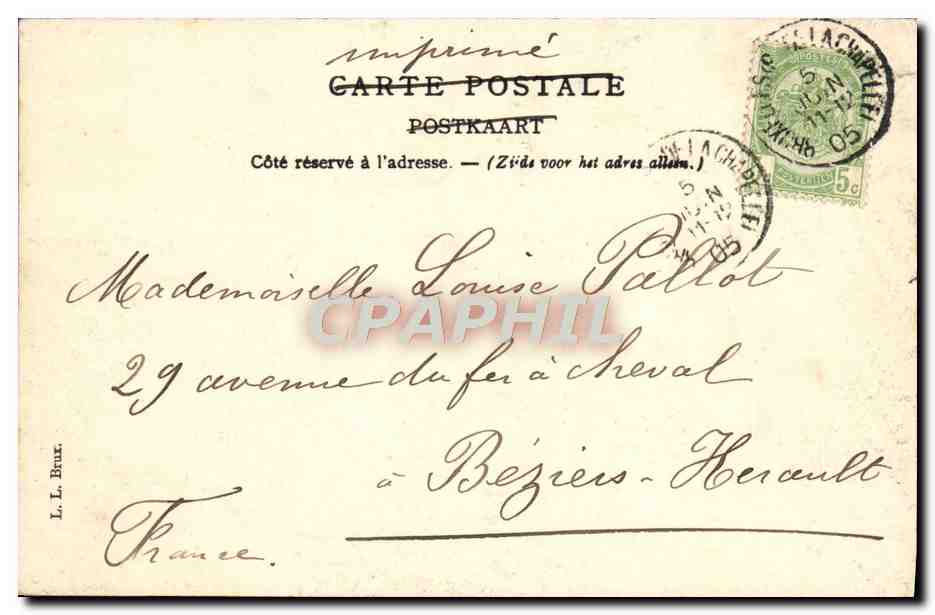 imprimé
CARTE POSTALE
POSTKAART
Côté réservé à l'adresse. — (Zijde voor het adres alleen.)
POSTES
POSTERIJEN
5 c
DE LA CHAPELLE)
5
JUIN
11-12
05
DE LA CHAPELLE)
5
JUIN
11-12
05
Mademoiselle Louise Pallot
CPAPHIL
29 avenue du fer à cheval
à Béziers - Herault
France.
L. L. Brux.